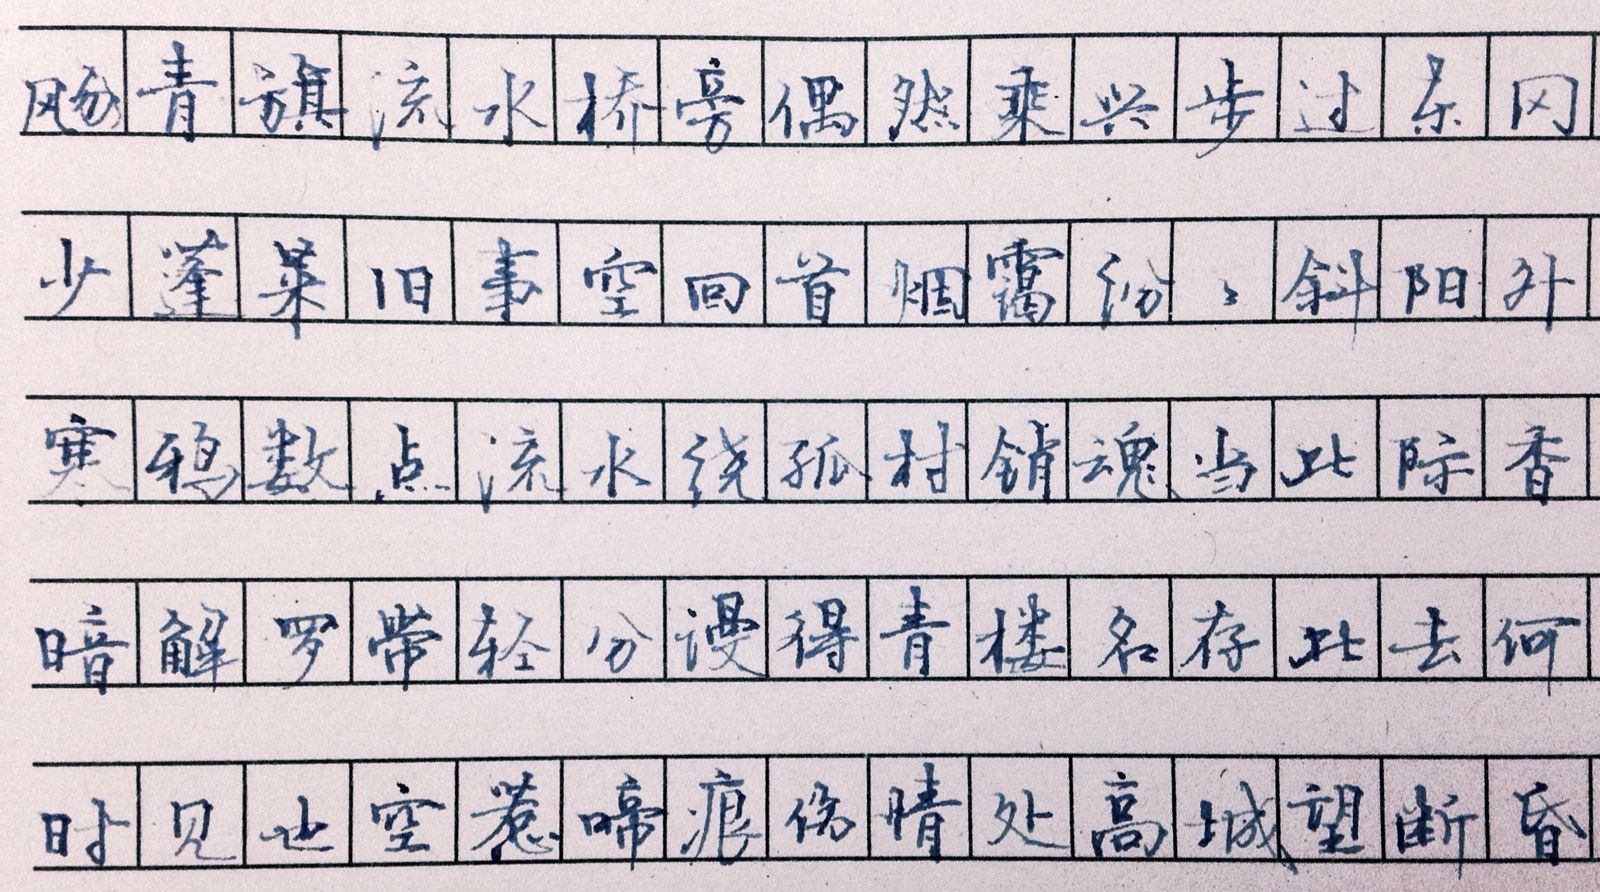 飏青旗流水桥旁偶然乘兴步过东冈
少蓬莱旧事空回首烟霭纷〻斜阳外
寒鸦数点流水绕孤村销魂当此际香
暗解罗带轻分谩得青楼名存此去何
时见也空惹啼痕伤情处高城望断昏